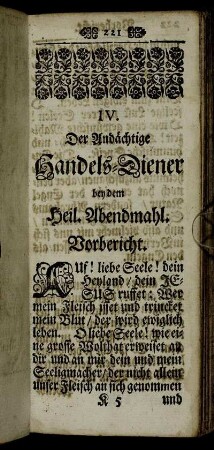 221
IV.
Der Andächtige
Handels-Diener
bey dem
Heil. Abendmahl.
Vorbericht.
AUf! liebe Seele! dein
Heyland / dein JE-
SUS ruffet: Wer
mein Fleisch isset und trincket
mein Blut / der wird ewiglich
leben. O liebe Seele! wie ei-
ne grosse Wolthat erweiset an
dir und an mir dein und mein
Seeligmacher / der nicht allein
unser Fleisch an sich genommen
K 5 und